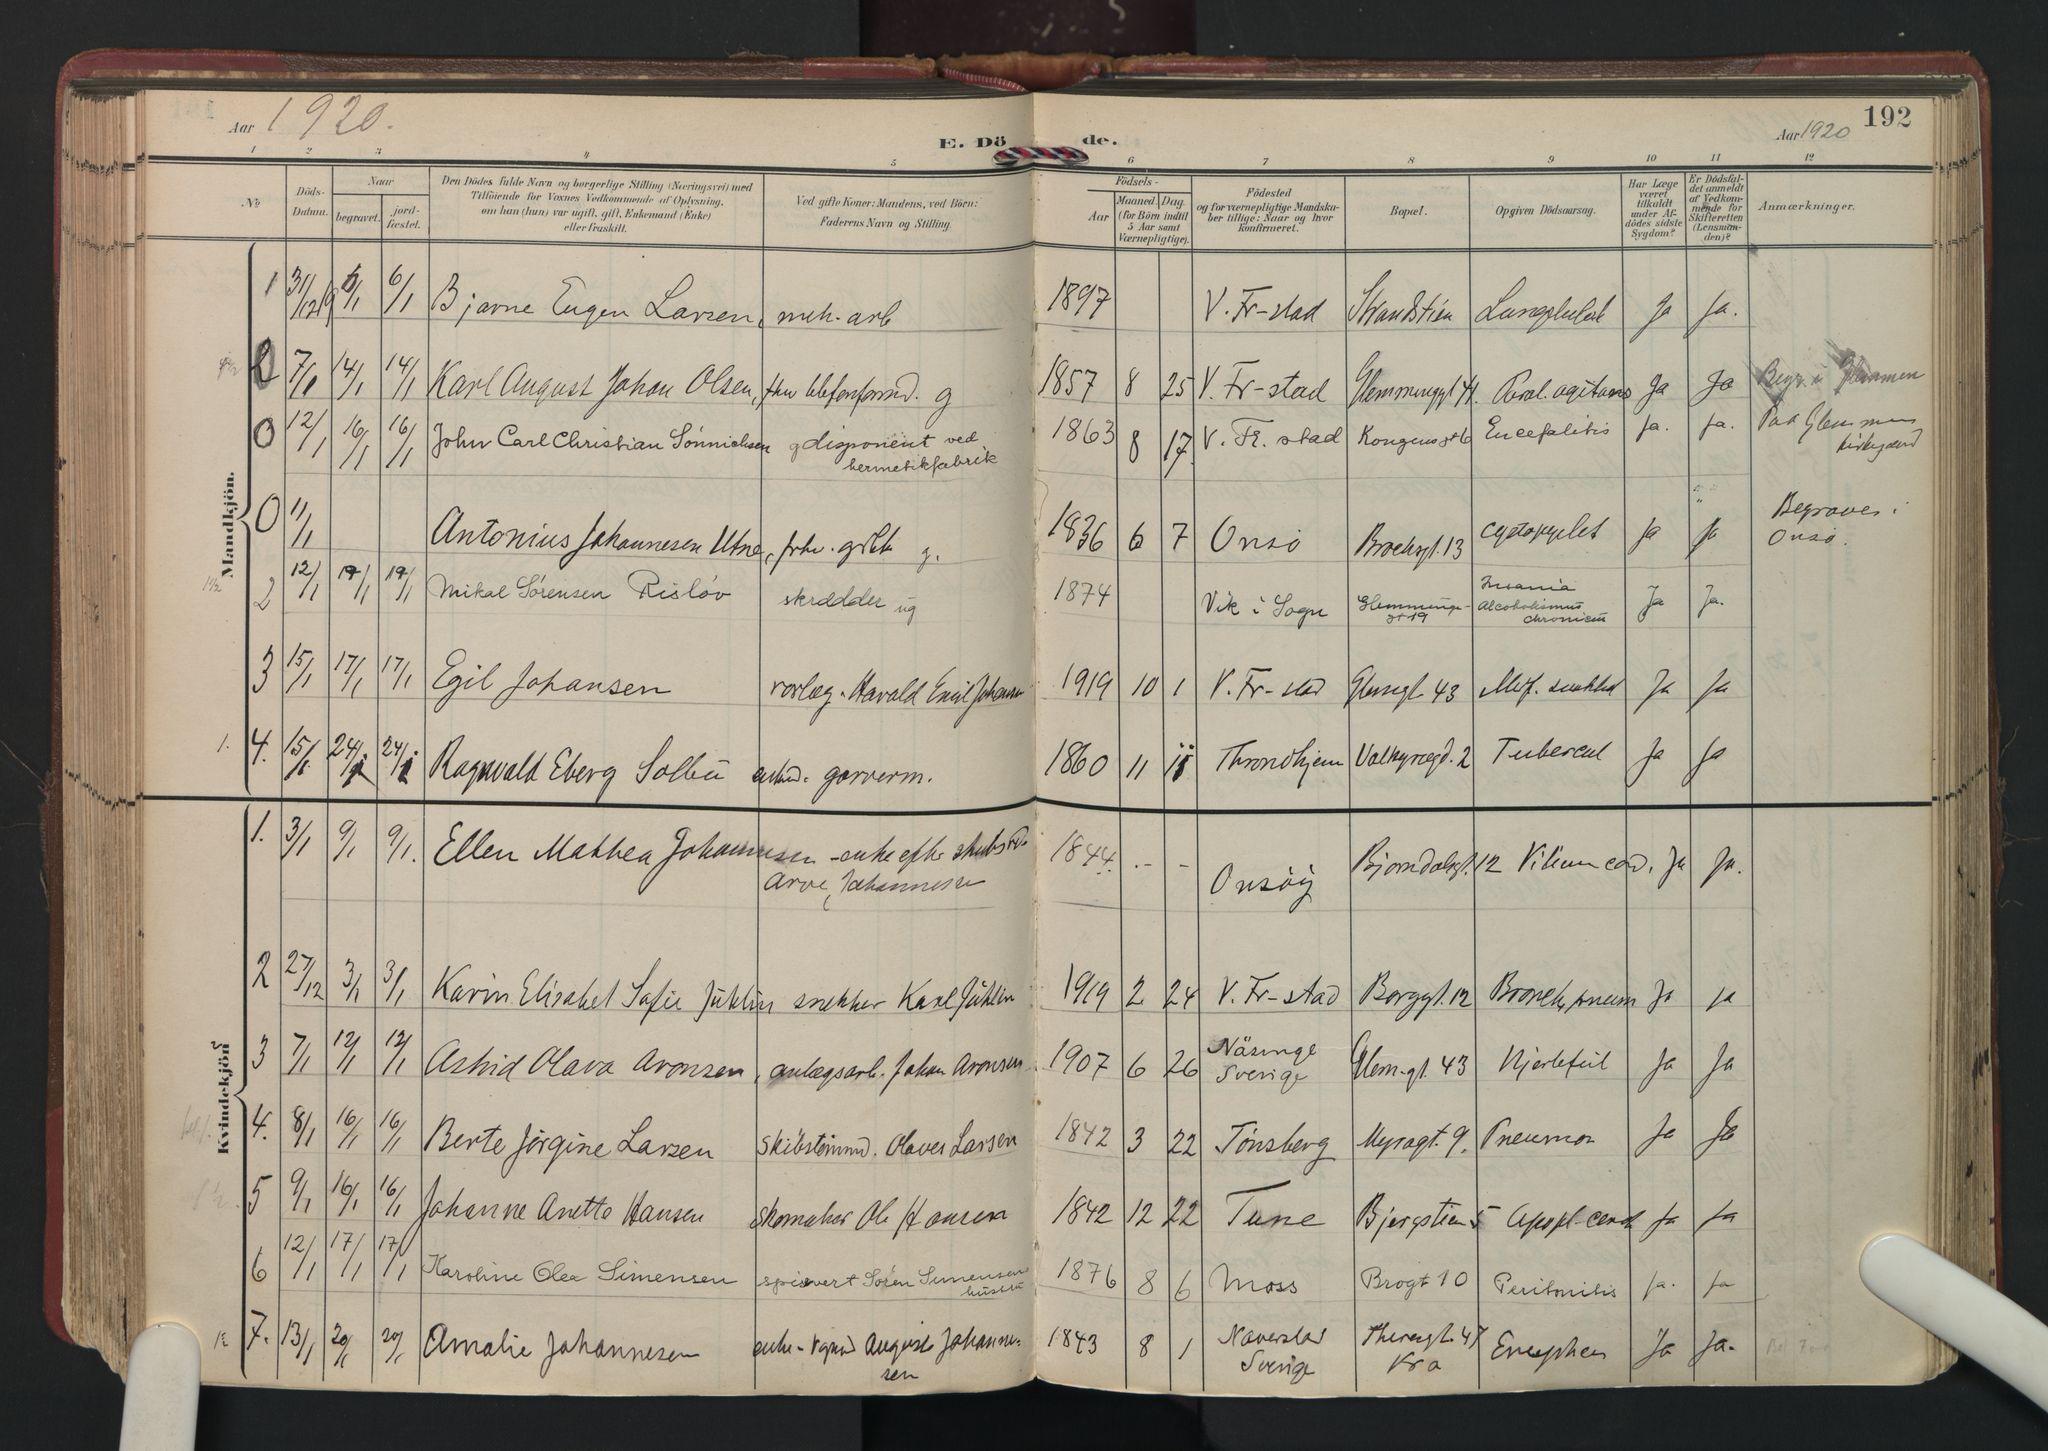 Aar 1920.
E. Dö de.
Aar 1920
192
1 2 3 4 5 6 7 8 9 10 11 12
No
Döds-
Datum.
Naar
begravet.
jord-
fæstet.
Den Dödes fulde Navn og borgerlige Stilling (Næringsvei) med
Tilföiende for Voxnes Vedkommende af Oplysning,
om han (hun) var ugift, gift, Enkemand (Enke)
eller fraskilt.
Ved gifte Koner: Mandens, ved Börn:
Faderens Navn og Stilling.
Födsels-
Aar
Maaned. Dag.
(for Börn indtil
5 Aar samt
Værnepligtige).
Födested
og for værnepligtige Mandska-
ber tillige: Naar og hvor
konfirmeret.
Bopæl.
Opgiven Dödsaarsag.
Har Læge
været
tilkaldt
under Af-
dödes sidste
Sygdom?
Er Dödsfal-
det anmeldt
af Vedkom-
mende for
Skifteretten
(Lensman-
den)?
Anmærkninger.
Mandkjön.
1 31/12 19 6/1 6/1 Bjarne Eugen Larsen, mek. arb 1897 V. Fr-stad Strandstien Ja Ja.
7/1 14/1 14/1 Karl August Johan Olsen, g 1857 8 25 V. Fr-stad Paral. agitans Ja Ja Begr. i Glemmen
0 12/1 16/1 16/1 John Carl Christian Sönnichsen g disponent ved 1863 8 17 V. Fr. stad Kongensgt 6 Encefalitis Ja. Ja. Paa Glemmen
hermetikfabrik
kirkegaard
0 11/1 Antonius Johannesen Utne, g. 1836 6 7 Onsö Brochsgt. 13 Ja Ja Begraves i
Onsö.
2 12/1 19/1 19/1 Mikal Sörensen Rislöv skrædder ug 1874 Vik i Sogn Glemminge- Insania Ja Ja.
gt 19
alcoholismus
chronicus
3 15/1 17/1 17/1 Egil Johansen rørlæg. Harald Emil Johansen 1919 10 1 V. Fr-stad Glemgt. 43 Ja Ja
4. 15/1 24/1 24/1 Ragnvald Eberg Solbu enkm. garverm. 1860 11 11 Throndhjem Valkyriegd. 2 Tubercul Ja Ja
Kvindekjön
1. 3/1 9/1 9/1. Ellen Mathea Johannesen - enke efter 1844 - - Onsöy Bjorndalsgt. 12 Vitium cord. Ja Ja.
Arve Johannesen
2 27/12 3/1 3/1 Karin Elisabet Sofie Juhlin snekker Karl Juhlin 1919 2 24 V. Fr-stad Borggt. 12 Bronch. pneum Ja Ja
3 7/1 12/1 12/1 Astrid Olava Aronsen, anlægsarb. Johan Aronsen 1907 6 26 Näsinge Glem.gt. 43 Hjertefeil Ja Ja
Sverige
4. 8/1 16/1 16/1 Berte Jörgine Larsen skibstömmd. Olaves Larsen 1842 3 22 Tönsberg Myragt. 9. Pneumon Ja Ja
5 9/1 16/1 16/1 Johanne Anette Hansen skomaker Ole Hansen 1842 12 22 Tune Bjergstien 5 Apopl. cereb Ja Ja
6 12/1 17/1 17/1 Karoline Olea Simensen Sören Simensen 1876 8 6 Moss Brogt 10 Peritonitis Ja. Ja
hustru
7. 13/1 20/1 20/1 Amalie Johannesen enke - August Johanne- 1843 8 1 Naverstad Theresgt. 47 Ja Ja.
sen
Sverige
Kra